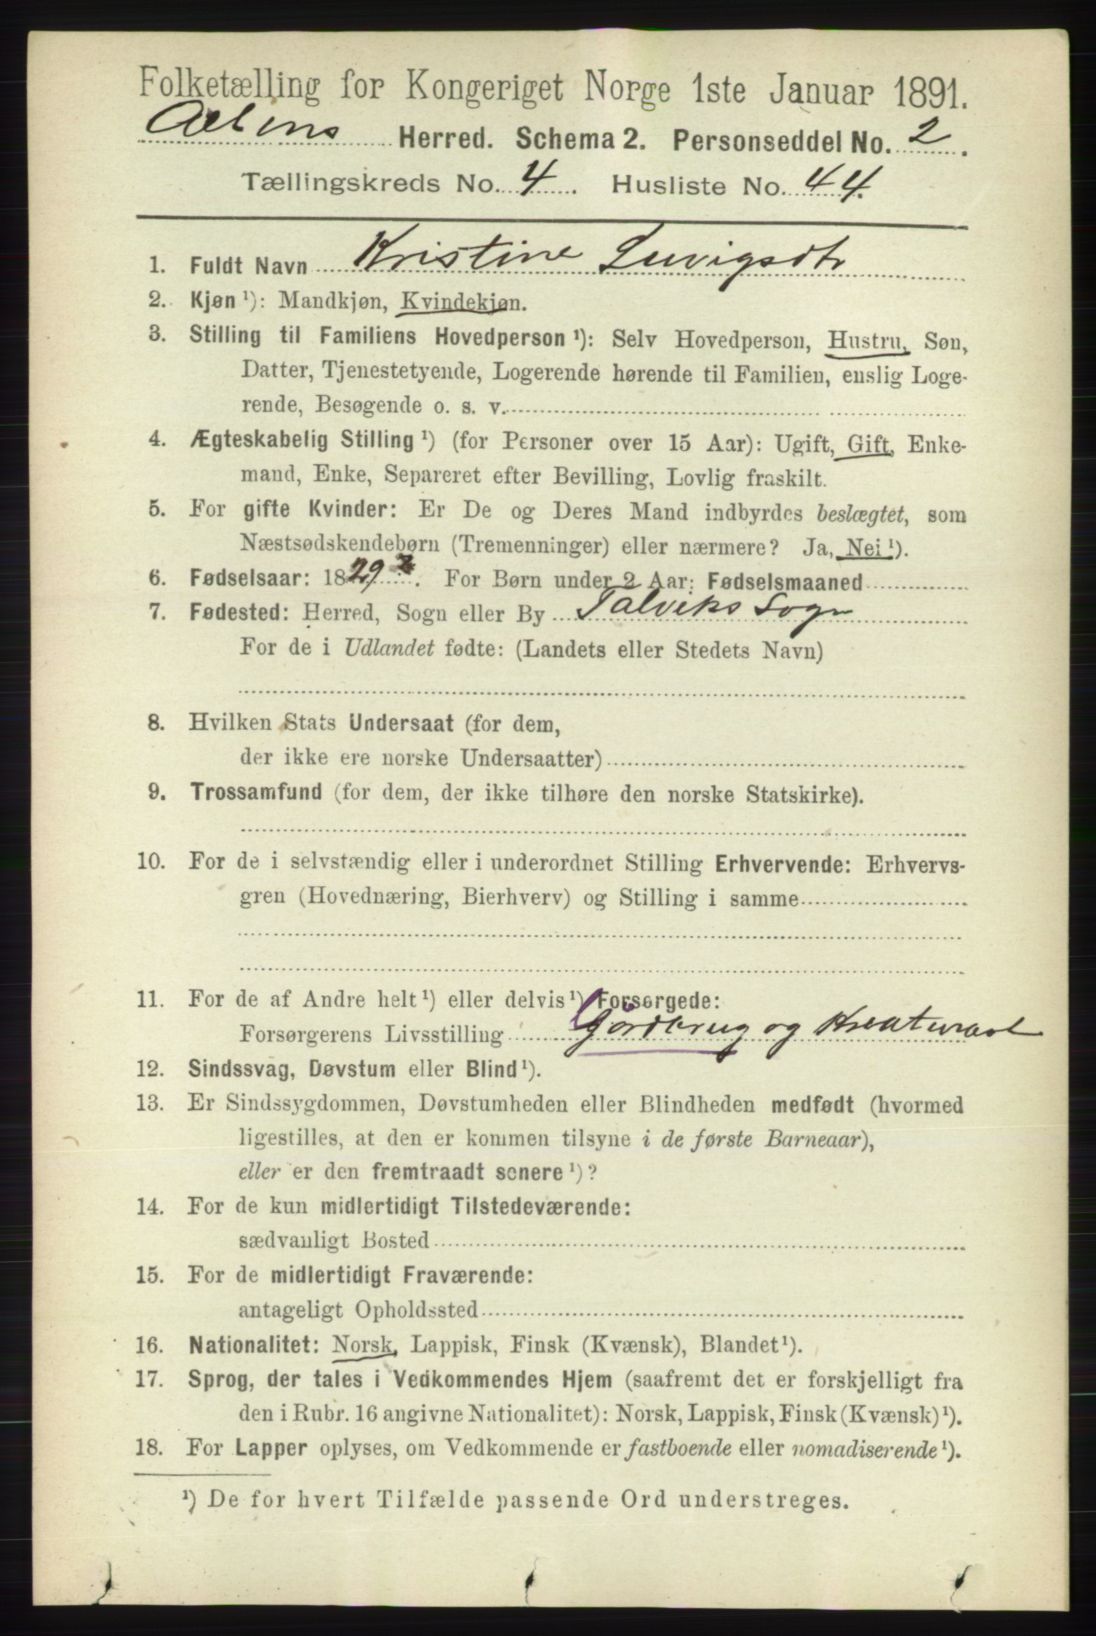 Folketælling for Kongeriget Norge 1ste Januar 1891.
Altens Herred. Schema 2. Personseddel No. 2.
Tællingskreds No. 4. Husliste No. 44.
1. Fuldt Navn Kristine Luvigsdtr
2. Kjøn ¹): Mandkjøn, Kvindekjøn.
3. Stilling til Familiens Hovedperson ¹): Selv Hovedperson, Hustru, Søn,
Datter, Tjenestetyende, Logerende hørende til Familien, enslig Loge-
rende, Besøgende o. s. v.
4. Ægteskabelig Stilling ¹) (for Personer over 15 Aar): Ugift, Gift, Enke-
mand, Enke, Separeret efter Bevilling, Lovlig fraskilt.
5. For gifte Kvinder: Er De og Deres Mand indbyrdes beslægtet, som
Næstsødskendebørn (Tremenninger) eller nærmere? Ja, Nei ¹).
6. Fødselsaar: 1829. For Børn under 2 Aar: Fødselsmaaned
7. Fødested: Herred, Sogn eller By Talviks Sogn
For de i Udlandet fødte: (Landets eller Stedets Navn)
8. Hvilken Stats Undersaat (for dem,
der ikke ere norske Undersaatter)
9. Trossamfund (for dem, der ikke tilhøre den norske Statskirke).
10. For de i selvstændig eller i underordnet Stilling Erhvervende: Erhvervs-
gren (Hovednæring, Bierhverv) og Stilling i samme
11. For de af Andre helt ¹) eller delvis ¹) Forsørgede:
Forsørgerens Livsstilling Gårdbrug og Kreaturavl
12. Sindssvag, Døvstum eller Blind ¹).
13. Er Sindssygdommen, Døvstumheden eller Blindheden medfødt (hvormed
ligestilles, at den er kommen tilsyne i de første Barneaar),
eller er den fremtraadt senere ¹)?
14. For de kun midlertidigt Tilstedeværende:
sædvanligt Bosted
15. For de midlertidigt Fraværende:
antageligt Opholdssted
16. Nationalitet: Norsk, Lappisk, Finsk (Kvænsk), Blandet ¹).
17. Sprog, der tales i Vedkommendes Hjem (saafremt det er forskjelligt fra
den i Rubr. 16 angivne Nationalitet): Norsk, Lappisk, Finsk (Kvænsk) ¹).
18. For Lapper oplyses, om Vedkommende er fastboende eller nomadiserende ¹).
¹) De for hvert Tilfælde passende Ord understreges.